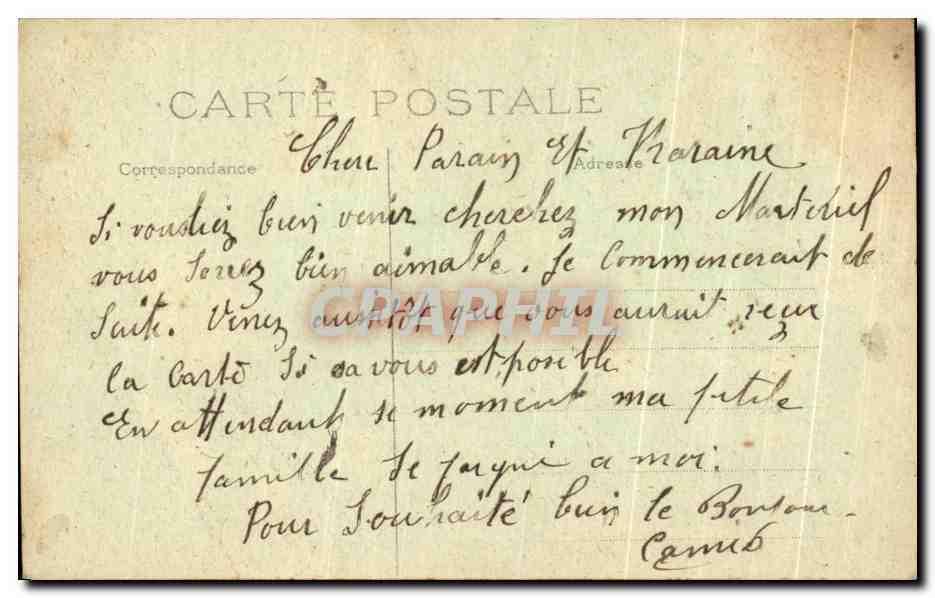 CARTE POSTALE
Correspondance
Adresse
Cher Parain Et Maraine
Si vousliez bien venir cherchez mon Marteriel
vous serrez bien aimable. Je Commencerait de
suite. Venez aussitôt que vous aurait reçu
la Carte Si sa vous est posible
En attendant se moment ma petite
famille se joque a moi.
Pour Souhaité bien le Bonjour.
CPAPHIL